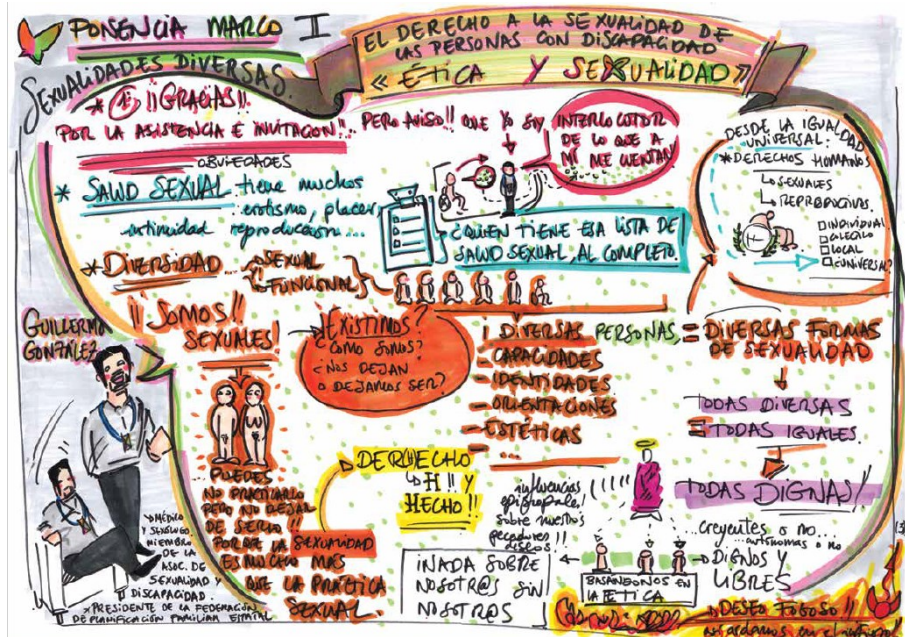 PONENCIA MARCO II
SEXUALIDADES DIVERSAS.
EL DERECHO A LA SEXUALIDAD DE
LAS PERSONAS CON DISCAPACIDAD
« ÉTICA Y SEXUALIDAD »
* ¡¡GRACIAS!!
POR LA ASISTENCIA E INVITACIÓN!..
PERO AVISO!! QUE YO SOY
INTERLOCUTOR
DE LO QUE A
MÍ ME CUENTAN
OBVIEDADES
* SALUD SEXUAL tiene muchos
erotismo, placer,
intimidad reproducción....
¿QUIEN TIENE ESA LISTA DE
SALUD SEXUAL, AL COMPLETO.
DESDE LA IGUALDAD
UNIVERSAL:
* DERECHOS HUMANOS
SEXUALES
REPRODUCTIVOS.
INDIVIDUAL
COLECTIVO
LOCAL
¿UNIVERSAL?
* DIVERSIDAD... SEXUAL
FUNCIONAL
GUILLERMO
GONZÁLEZ
¡¡SOMOS!!
SEXUALES!
¿EXISTIMOS?
¿COMO SOMOS?
¿NOS DEJAN
O DEJAMOS SER?
¡DIVERSAS PERSONAS, = DIVERSAS FORMAS
DE SEXUALIDAD
- CAPACIDADES
- IDENTIDADES
- ORIENTACIONES
- ESTÉTICAS
...
TODAS DIVERSAS
= TODAS IGUALES.
TODAS DIGNAS!!
PUEDES
NO PRACTICARLO
PERO NO DEJAR
DE SERLO!!
PORQUE LA SEXUALIDAD
ES MUCHO MAS
QUE LA PRÁCTICA
SEXUAL.
DER(H)ECHO
H!! Y
HECHO!!
influencias
episcopales!
sobre nuestros
pecadores!!
deseos
¡NADA SOBRE
NOSOTR@S SIN
NOSOTR@S
BASANDONOS EN
LA ÉTICA
...creyentes o no...
...autónomas o no
DIGNOS Y
LIBRES
DESEO FOGOSO!!
MÉDICO
Y SEXÓLOGO,
MIEMBRO
DE LA
ASOC. DE
SEXUALIDAD Y
DISCAPACIDAD.
* PRESIDENTE DE LA FEDERACIÓN
DE PLANIFICACIÓN FAMILIAR ESTATAL